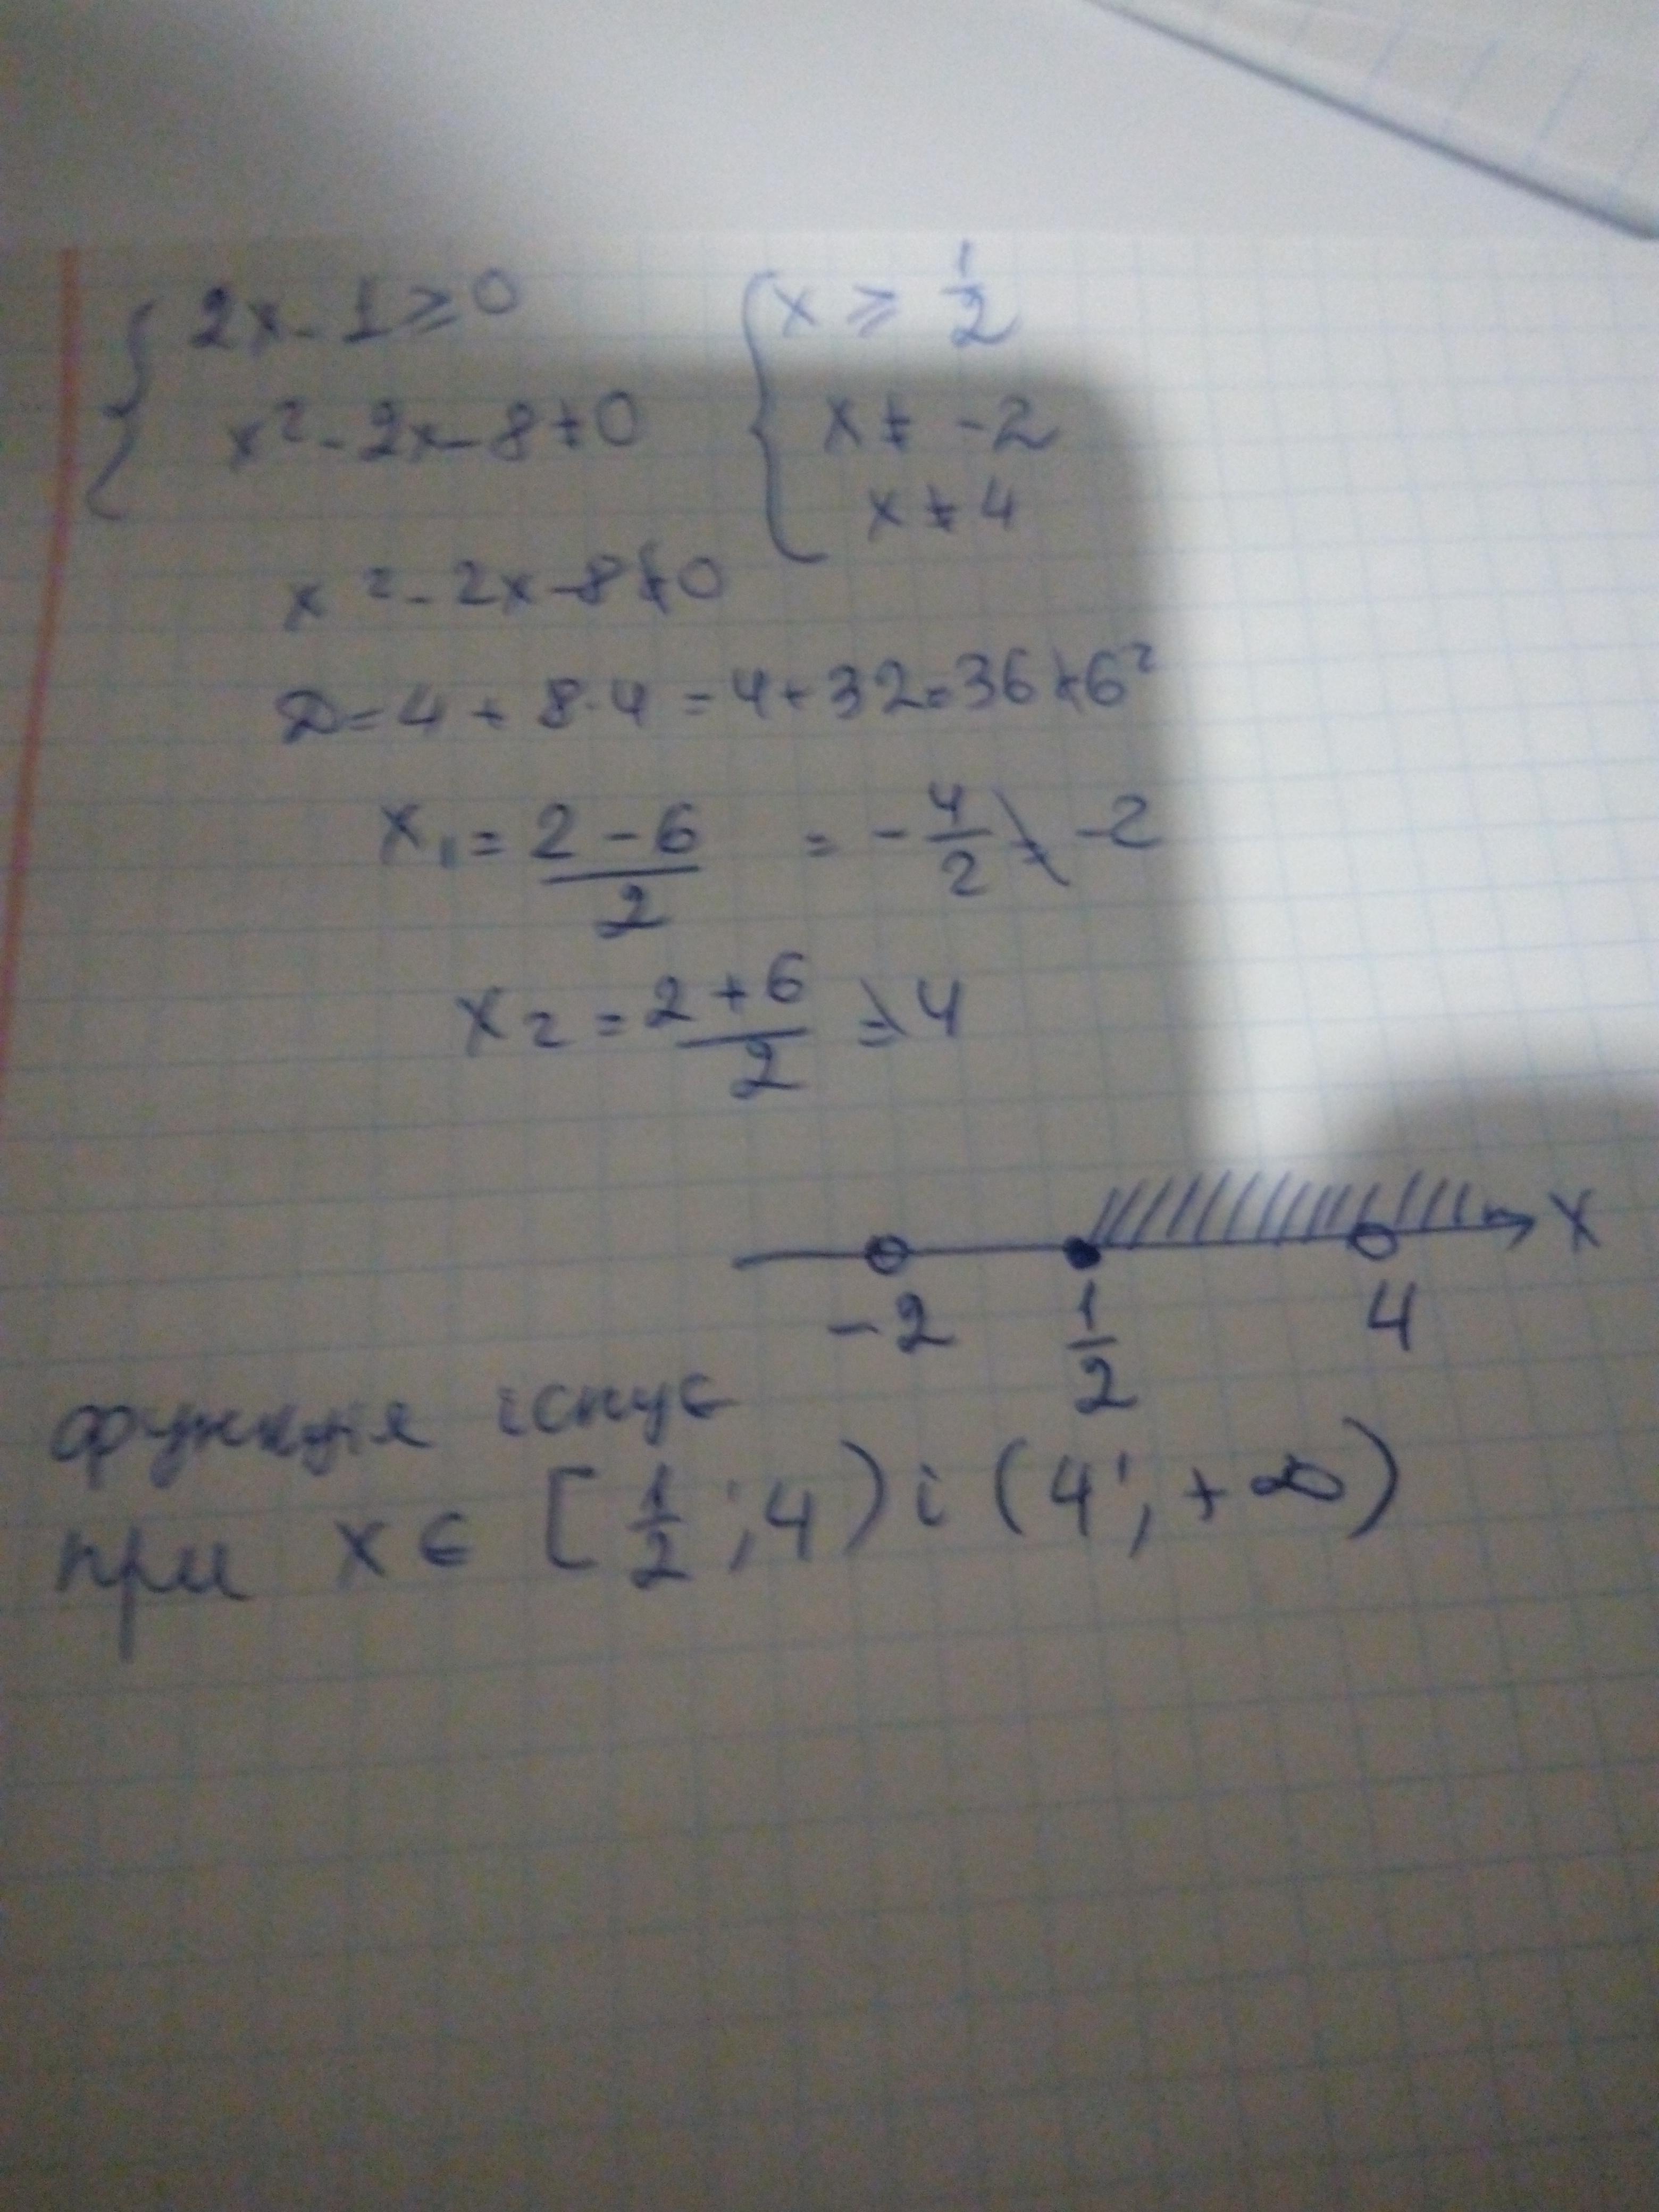 { 2x - 1 ≥ 0 { x ≥ 1/2
x² - 2x - 8 ≠ 0 x ≠ -2
x ≠ 4
x² - 2x - 8 ≠ 0
D = 4 + 8·4 = 4 + 32 = 36 ≠ 6²
x₁ = (2 - 6)/2 = -4/2 ≠ -2
x₂ = (2 + 6)/2 ≠ 4
x
-2 1/2 4
функція існує
при x ∈ [1/2; 4) і (4; +∞)